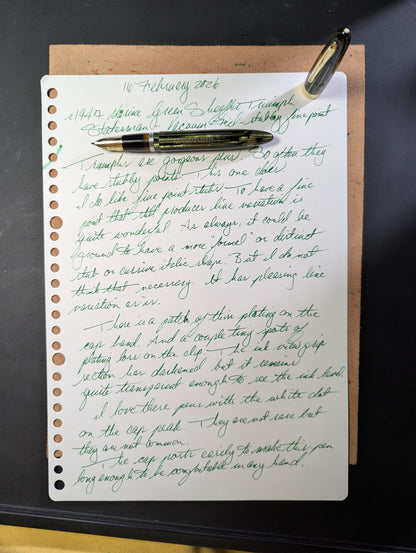 16 February 2026
1940's Marine Green Sheaffer Triumph
Statesman Vacuum-Fil - stubby fine point
Triumphs are gorgeous pens. So often they
have stubby points. This one does.
I do like fine point stubs. To have a fine
point that still producer line variation is
quite wonderful. As always, it could be
ground to have a more "formal" or distinct
stub or cursive italic shape. But I do not
think that necessary. It has pleasing line
variation as is.
There is a patch of thin plating on the
cap band. And a couple tiny spots of
plating loss on the clip. The ink view grip
section has darkened but it remains
quite transparent enough to see the ink level.
I love these pens with the white dot
on the cap peak. They are not rare but
they are not common.
The cap posts easily to make this pen
long enough to be comfortable in any hand.